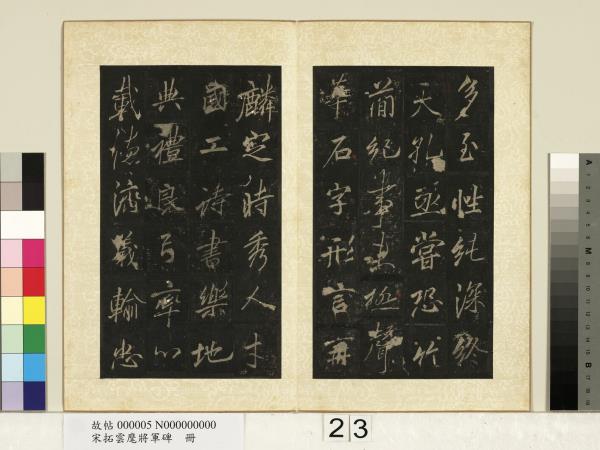 多至性純深終
天孔亟嘗恐竹
簡紀事未極聲
華石字形言再
麟定時秀人才
國工詩書樂地
典禮良弓率心
載德濟美輸忠
故帖 000005 N000000000
宋拓雲麾將軍碑 冊
23
A
M
B